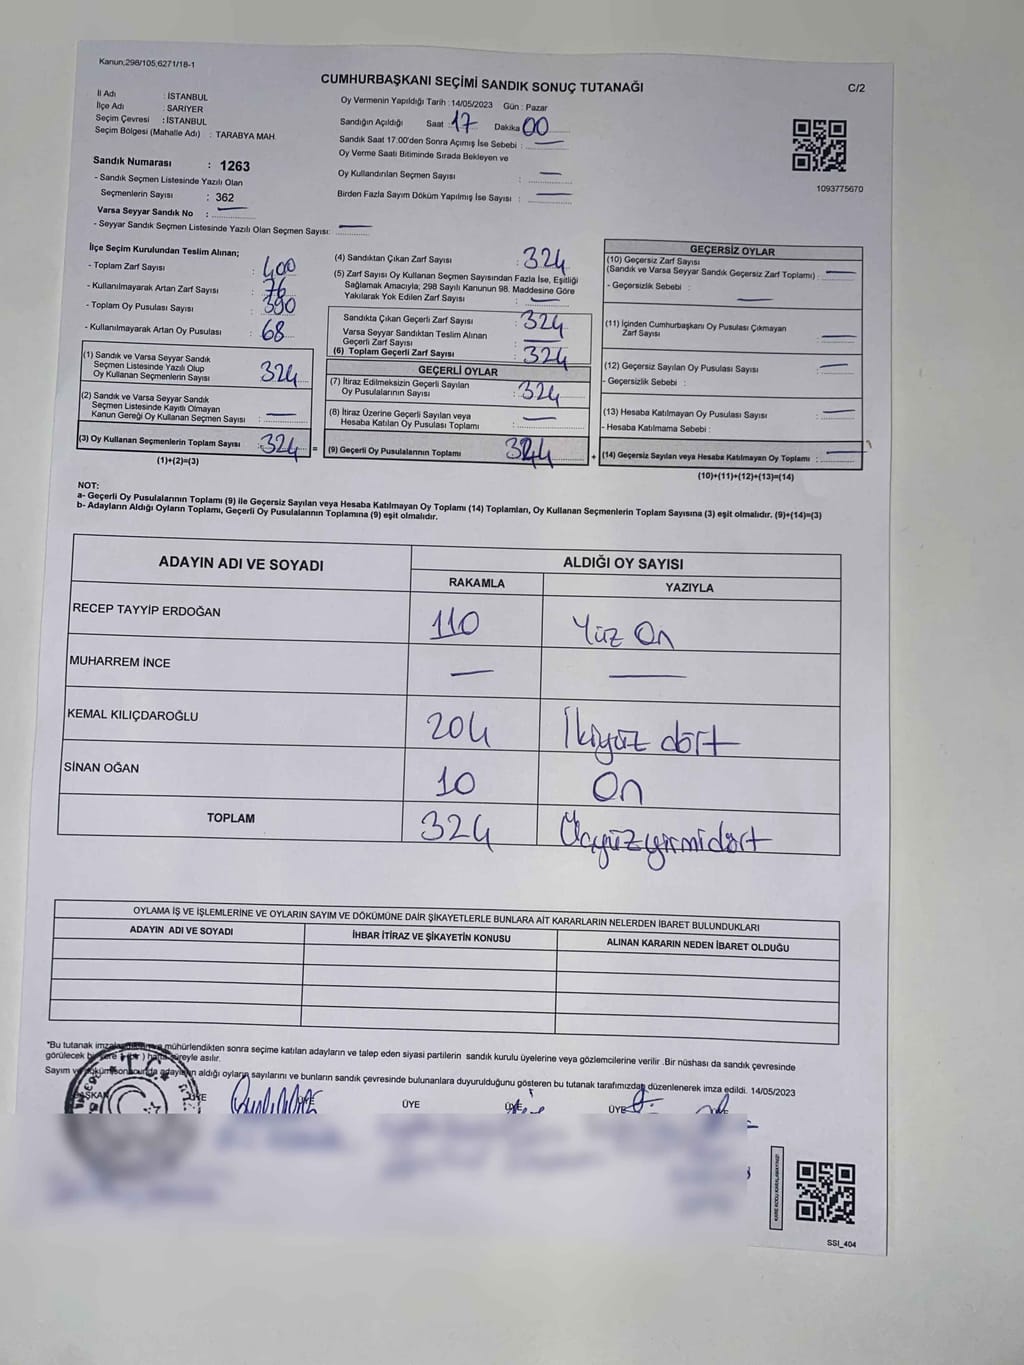 Kanun;298/105,6271/18-1
CUMHURBAŞKANI SEÇİMİ SANDIK SONUÇ TUTANAĞI
C/2
İl Adı : İSTANBUL
İlçe Adı : SARIYER
Seçim Çevresi : İSTANBUL
Seçim Bölgesi (Mahalle Adı) : TARABYA MAH.
Sandık Numarası : 1263
- Sandık Seçmen Listesinde Yazılı Olan
Seçmenlerin Sayısı : 362
Varsa Seyyar Sandık No : —
- Seyyar Sandık Seçmen Listesinde Yazılı Olan Seçmen Sayısı: —
Oy Vermenin Yapıldığı Tarih : 14/05/2023 Gün : Pazar
Sandığın Açıldığı Saat : 17 Dakika 00
Sandık Saat 17:00'den Sonra Açımış İse Sebebi : —
Oy Verme Saati Bitiminde Sırada Bekleyen ve
Oy Kullandırılan Seçmen Sayısı : —
Birden Fazla Sayım Döküm Yapılmış İse Sayısı : —
1093775670
İlçe Seçim Kurulundan Teslim Alınan;
- Toplam Zarf Sayısı : 400
- Kullanılmayarak Artan Zarf Sayısı : 76
- Toplam Oy Pusulası Sayısı : 390
- Kullanılmayarak Artan Oy Pusulası : 68
(1) Sandık ve Varsa Seyyar Sandık
Seçmen Listesinde Yazılı Olup
Oy Kullanan Seçmenlerin Sayısı : 324
(2) Sandık ve Varsa Seyyar Sandık
Seçmen Listesinde Kayıtlı Olmayan
Kanun Gereği Oy Kullanan Seçmen Sayısı : —
(3) Oy Kullanan Seçmenlerin Toplam Sayısı : 324 =
(1)+(2)=(3)
(4) Sandıktan Çıkan Zarf Sayısı : 324
(5) Zarf Sayısı Oy Kullanan Seçmen Sayısından Fazla İse, Eşitliği
Sağlamak Amacıyla, 298 Sayılı Kanunun 98. Maddesine Göre
Yakılarak Yok Edilen Zarf Sayısı : —
Sandıkta Çıkan Geçerli Zarf Sayısı : 324
Varsa Seyyar Sandıktan Teslim Alınan
Geçerli Zarf Sayısı : —
(6) Toplam Geçerli Zarf Sayısı : 324
GEÇERLİ OYLAR
(7) İtiraz Edilmeksizin Geçerli Sayılan
Oy Pusulalarının Sayısı : 324
(8) İtiraz Üzerine Geçerli Sayılan veya
Hesaba Katılan Oy Pusulası Toplamı : —
(9) Geçerli Oy Pusulalarının Toplamı 324 +
GEÇERSİZ OYLAR
(10) Geçersiz Zarf Sayısı
(Sandık ve Varsa Seyyar Sandık Geçersiz Zarf Toplamı) : —
- Geçersizlik Sebebi : —
(11) İçinden Cumhurbaşkanı Oy Pusulası Çıkmayan
Zarf Sayısı : —
(12) Geçersiz Sayılan Oy Pusulası Sayısı : —
- Geçersizlik Sebebi :
(13) Hesaba Katılmayan Oy Pusulası Sayısı : —
- Hesaba Katılmama Sebebi :
(14) Geçersiz Sayılan veya Hesaba Katılmayan Oy Toplamı : —
(10)+(11)+(12)+(13)=(14)
NOT:
a- Geçerli Oy Pusulalarının Toplamı (9) ile Geçersiz Sayılan veya Hesaba Katılmayan Oy Toplamı (14) Toplamları, Oy Kullanan Seçmenlerin Toplam Sayısına (3) eşit olmalıdır. (9)+(14)=(3)
b- Adayların Aldığı Oyların Toplamı, Geçerli Oy Pusulalarının Toplamına (9) eşit olmalıdır.
ADAYIN ADI VE SOYADI ALDIĞI OY SAYISI
RAKAMLA YAZIYLA
RECEP TAYYİP ERDOĞAN 110 Yüz On
MUHARREM İNCE — —
KEMAL KILIÇDAROĞLU 204 İkiyüz dört
SİNAN OĞAN 10 On
TOPLAM 324 Üçyüzyirmidört
OYLAMA İŞ VE İŞLEMLERİNE VE OYLARIN SAYIM VE DÖKÜMÜNE DAİR ŞİKAYETLERLE BUNLARA AİT KARARLARIN NELERDEN İBARET BULUNDUKLARI
ADAYIN ADI VE SOYADI İHBAR İTİRAZ VE ŞİKAYETİN KONUSU ALINAN KARARIN NEDEN İBARET OLDUĞU
"Bu tutanak mühürlendikten sonra seçime katılan adayların ve talep eden siyasi partilerin sandık kurulu üyelerine veya gözlemcilerine verilir .Bir nüshası da sandık çevresinde
görülecek bir yere 1 (bir) hafta süreyle asılır.
Sayım ve adayların aldığı oyların sayılarını ve bunların sandık çevresinde bulunanlara duyurulduğunu gösteren bu tutanak tarafımızdan düzenlenerek imza edildi. 14/05/2023
ÜYE ÜYE ÜYE
SSI_404